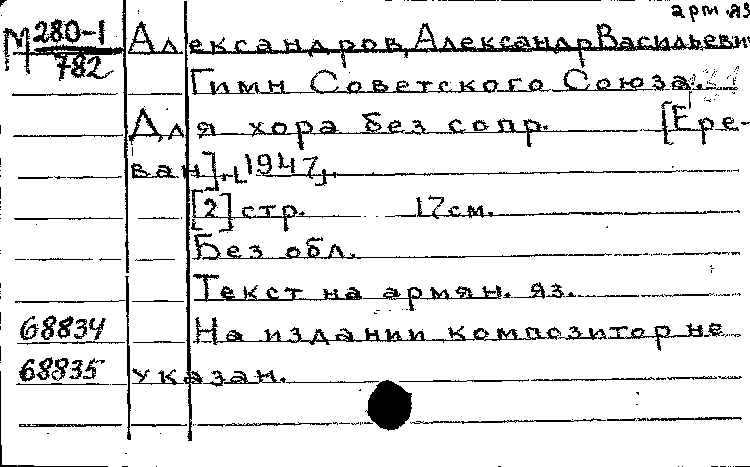 арм. яз
М 280-1 Александров, Александр Васильевич
782
Гимн Советского Союза.
Для хора без сопр. [Ере-
ван], [1947].
[2] стр. 17см.
Без обл.
Текст на армян. яз.
68834 На издании композитор не
68835 указан.